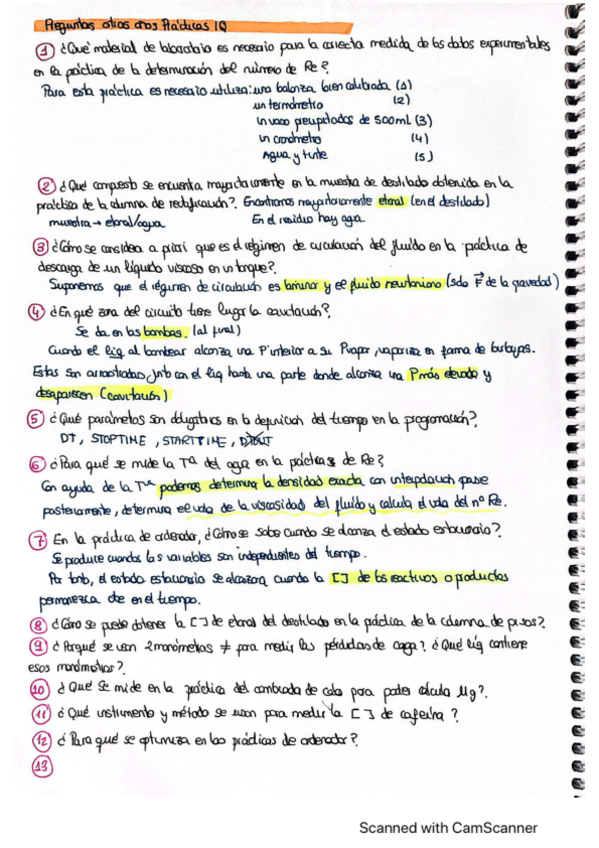 Preguntas otros años Prácticas IQ
1 ¿Qué material de laboratorio es necesario para la correcta medida de los datos experimentales
en la práctica de la determinación del número de Re?
Para esta práctica es necesario utilizar: una balanza bien calibrada (1)
un termómetro (2)
un vaso precipitados de 500ml (3)
un cronómetro (4)
Agua y tinte (5)
2 ¿Qué compuesto se encuentra mayoritariamente en la muestra de destilado obtenida en la
práctica de la columna de rectificación? Encontramos mayoritariamente etanol (en el destilado)
muestra → etanol/agua En el residuo hay agua
3 ¿Cómo se considera a priori que es el régimen de circulación del fluido en la práctica de
descarga de un líquido viscoso en un tanque?
Suponemos que el régimen de circulación es laminar y el fluido newtoniano (solo F de la gravedad)
4 ¿En qué zona del circuito tiene lugar la cavitación?
Se da en las bombas. (al final)
Cuando el liq al bombear alcanza una P inferior a su Pvapor, vaporiza en forma de burbujas.
Estas son arrastradas junto con el liq hasta una parte donde alcanza una P más elevada y
desaparecen (cavitación)
5 ¿Qué parámetros son obligatorios en la definición del tiempo en la programación?
DT, STOPTIME, STARTTIME, DTOUT
6 ¿Para qué se mide la Tª del agua en la prácticas de Re?
Con ayuda de la Tª podemos determinar la densidad exacta con interpolación para
posteriormente, determinar el valor de la viscosidad del fluido y calcular el valor del nº Re.
7 En la práctica de ordenador, ¿Cómo se sabe cuando se alcanza el estado estacionario?
Se produce cuando las variables son independientes del tiempo.
Por tanto, el estado estacionario se alcanzará cuando la [ ] de los reactivos o productos
permanezca cte en el tiempo.
8 ¿Cómo se puede obtener la [ ] de etanol del destilado en la práctica de la columna de pisos?
9 ¿Porqué se usan 2 manómetros ≠ para medir las pérdidas de carga? ¿Qué líq contiene
esos manómetros?
10 ¿Qué se mide en la práctica del cambiador de calor para poder calcular Ug?
11 ¿Qué instrumento y método se usan para medir la [ ] de cafeína?
12 ¿Para qué se optimiza en las prácticas de ordenador?
13
Scanned with CamScanner